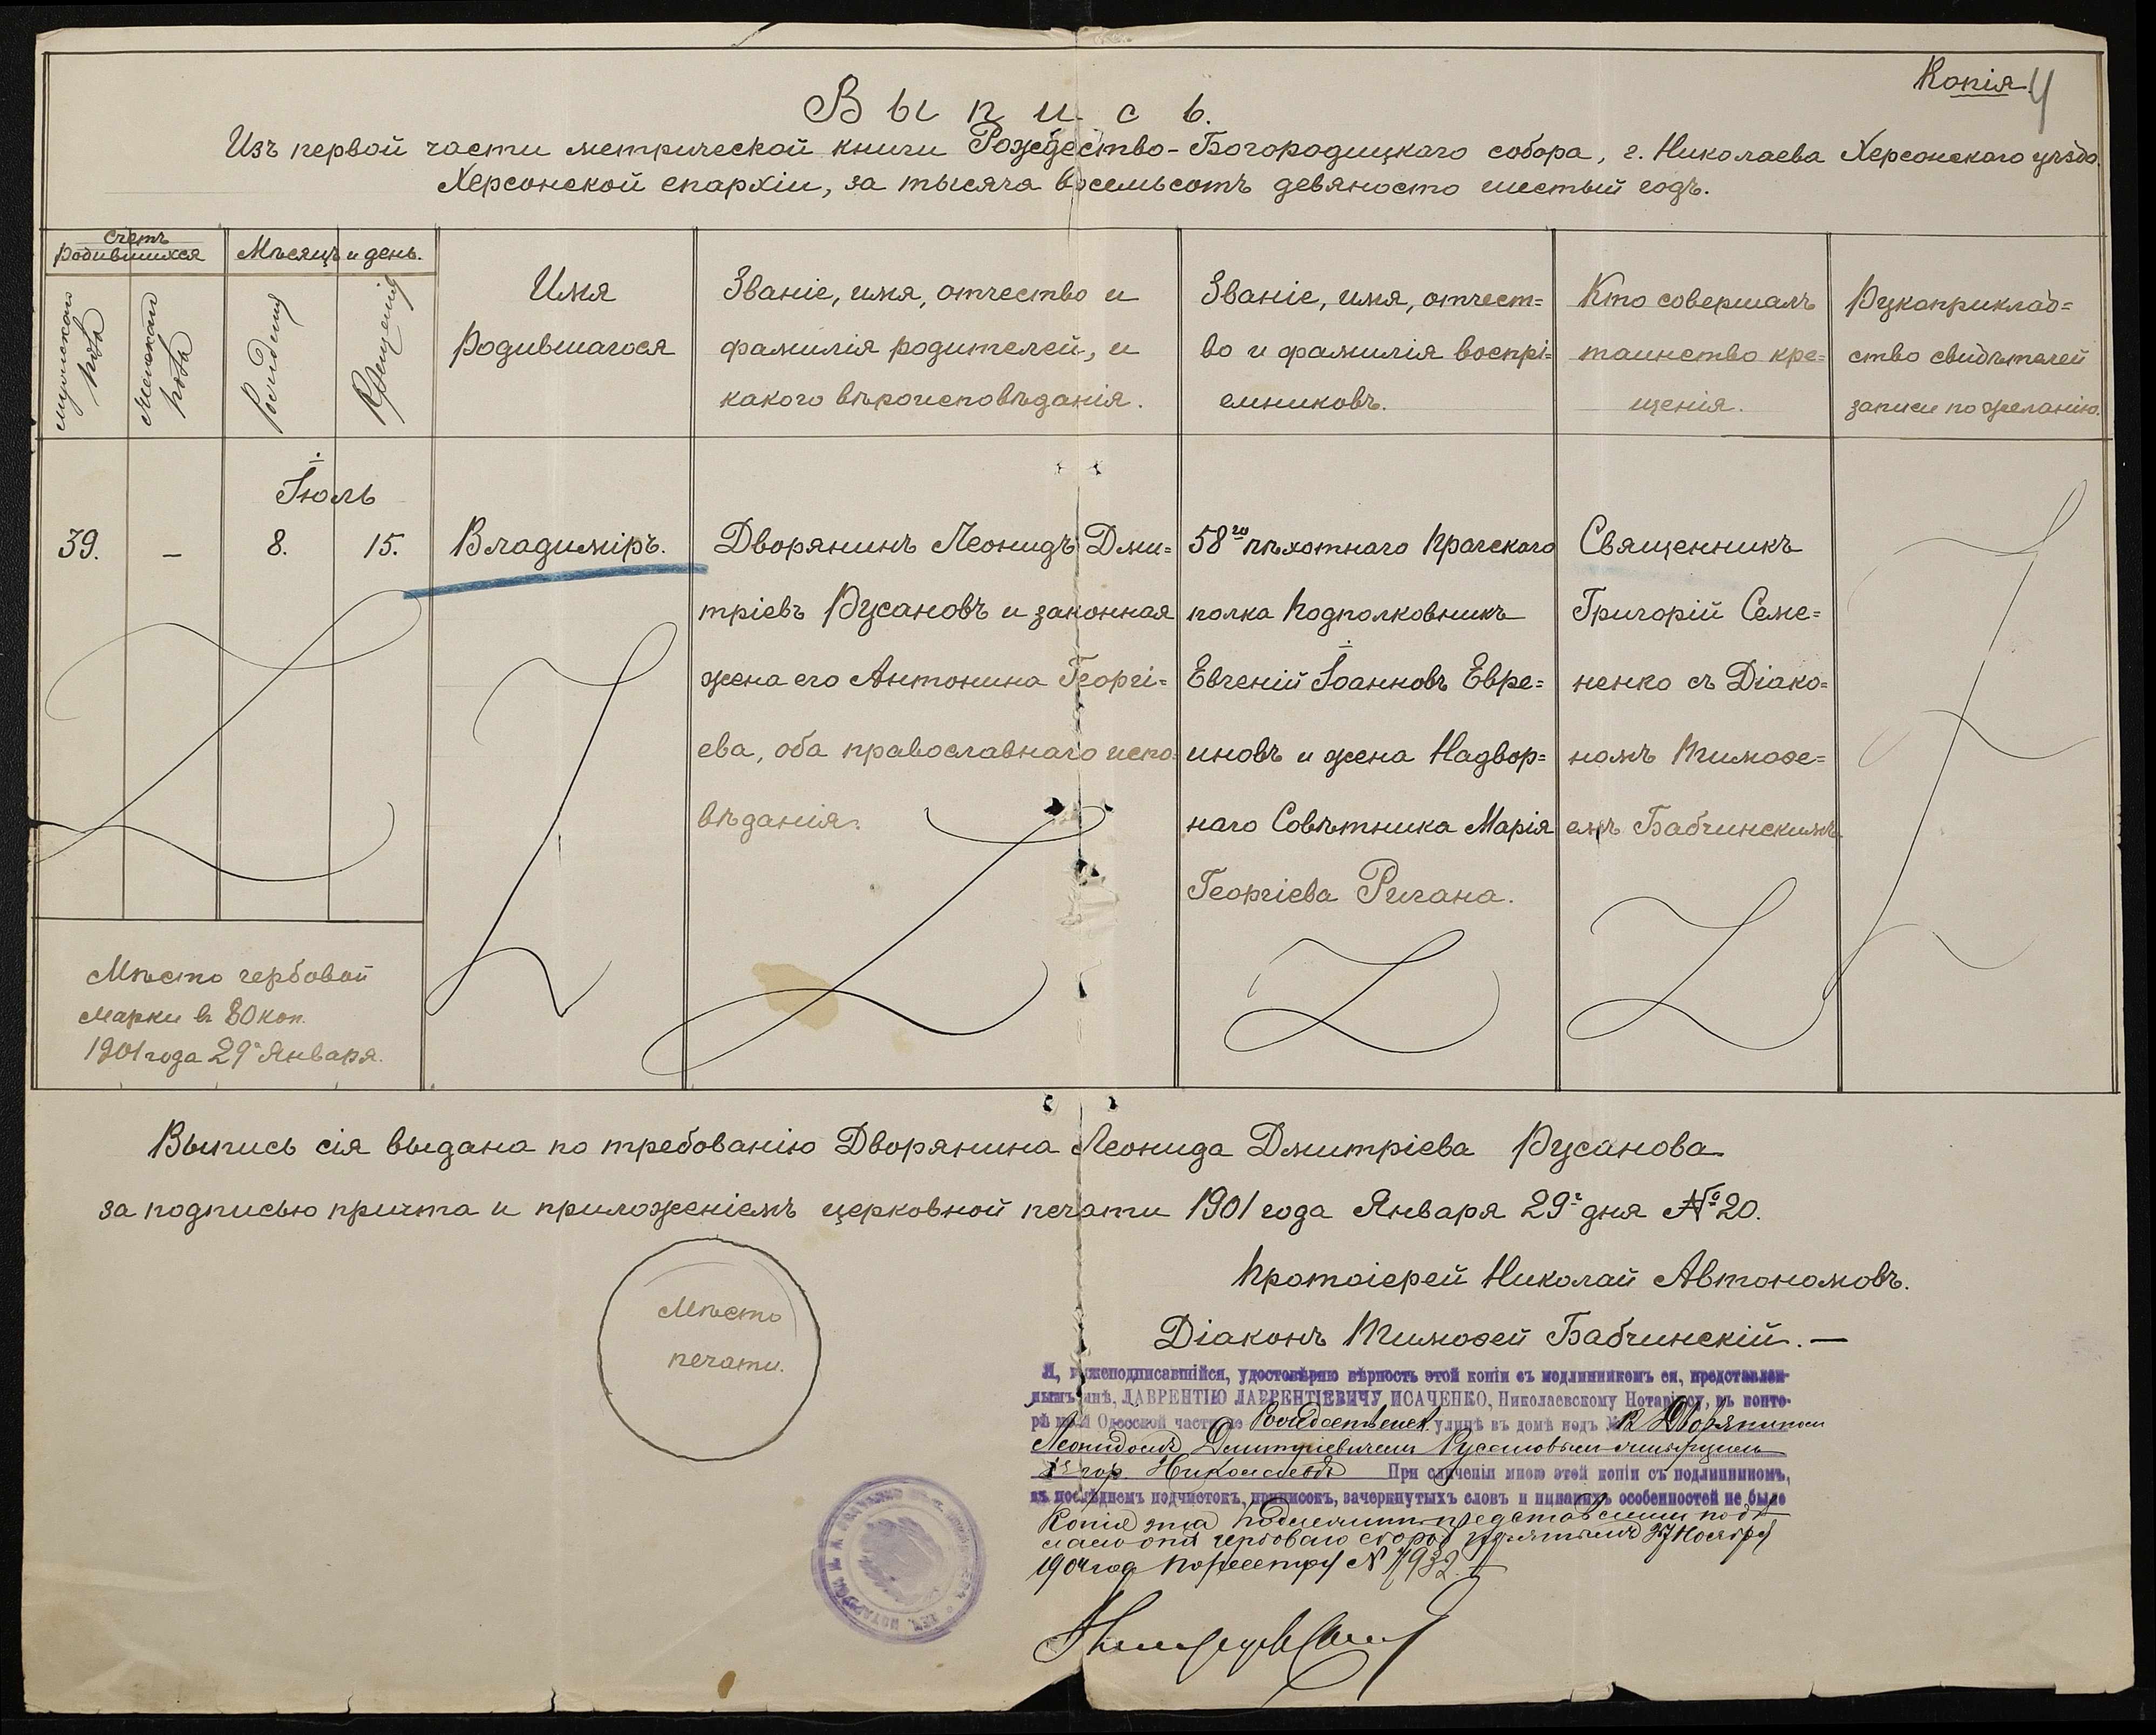 Копія 4
Выпись.
Изъ первой части метрической книги Рождество-Богородицкаго собора, г. Николаева Херсонскаго уѣзда
Херсонской епархіи, за тысяча восемьсотъ девяносто шестый годъ.
Счетъ родившихся
Мѣсяцъ и день.
мужскаго пола
женскаго пола
Рожденія
Крещенія
Имя
родившагося
Званіе, имя, отчество и
фамилія родителей, и
какого вѣроисповѣданія.
Званіе, имя, отчест=
во и фамилія воспрі=
емниковъ.
Кто совершалъ
таинство кре=
щенія.
Рукоприклад=
ство свидѣтелей
записи по желанію.
Іюль
39.
—
8.
15.
Владиміръ.
Дворянинъ Леонидъ Дми=
тріевъ Русановъ и законная
жена его Антонина Георгі=
ева, оба православнаго испо=
вѣданія.
58го пѣхотнаго Прагскаго
полка Подполковникъ
Евгеній Іоанновъ Евре=
иновъ и жена Надвор=
наго Совѣтника Марія
Георгіева Ригана.
Священникъ
Григорій Семе=
ненко съ Діако=
номъ Тимоѳе=
емъ Бабчинскимъ
Мѣсто гербовой
марки въ 80 коп.
1901 года 29го Января.
Выпись сія выдана по требованію Дворянина Леонида Дмитріева Русанова
за подписью причта и приложеніемъ церковной печати 1901 года Января 29го дня № 20.
Мѣсто
печати.
Протоіерей Николай Автономовъ.
Діаконъ Тимоѳей Бабчинскій. —
Я, нижеподписавшійся, удостовѣряю вѣрность этой копіи съ подлинникомъ ея, представлен-
нымъ мнѣ, ЛАВРЕНТІЮ ЛАВРЕНТІЕВИЧУ ИСАЧЕНКО, Николаевскому Нотаріусу, въ конто-
рѣ моей Одесской части по Рождественск. улицѣ въ домѣ подъ № Дворяниномъ
Леонидомъ Дмитріевичемъ Русановымъ живущимъ
въ гор. Николаевѣ При сличеніи мною этой копіи съ подлинникомъ,
въ послѣднемъ подчистокъ, приписокъ, зачеркнутыхъ словъ и никакихъ особенностей не было
Копія эта
гербоваго сбора Ноября
1904 года По реестру № 7932.